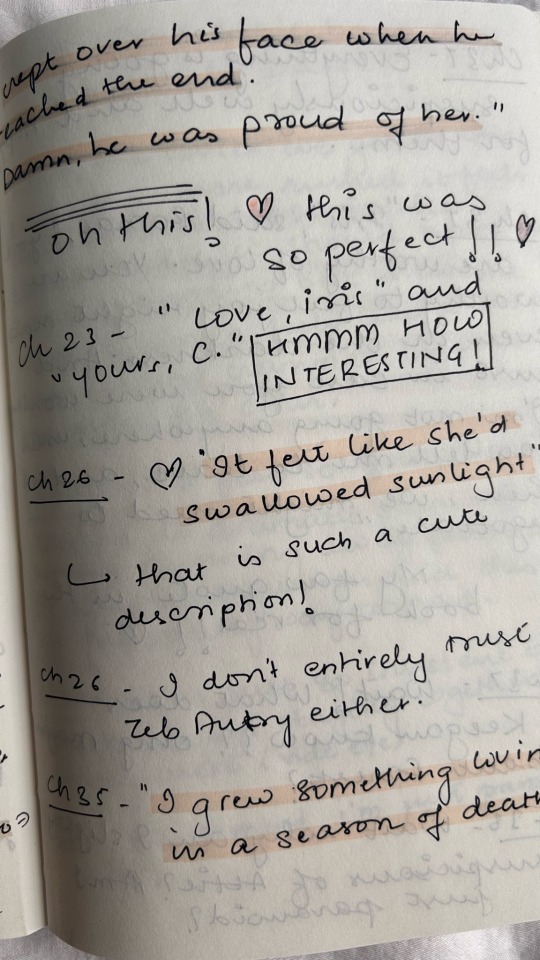 crept over his face when he
reached the end.
Damn, he was proud of her."
oh this! ♡ this was
so perfect!! ♡
ch 23 - "Love, iris" and
"yours, C." HMMM HOW
INTERESTING!
ch 26 - ♡ "It felt like she'd
swallowed sunlight"
↳ that is such a cute
description!
ch 26 - I don't entirely trust
Zeb Autry either.
ch 35 - "I grew something
in a season of death